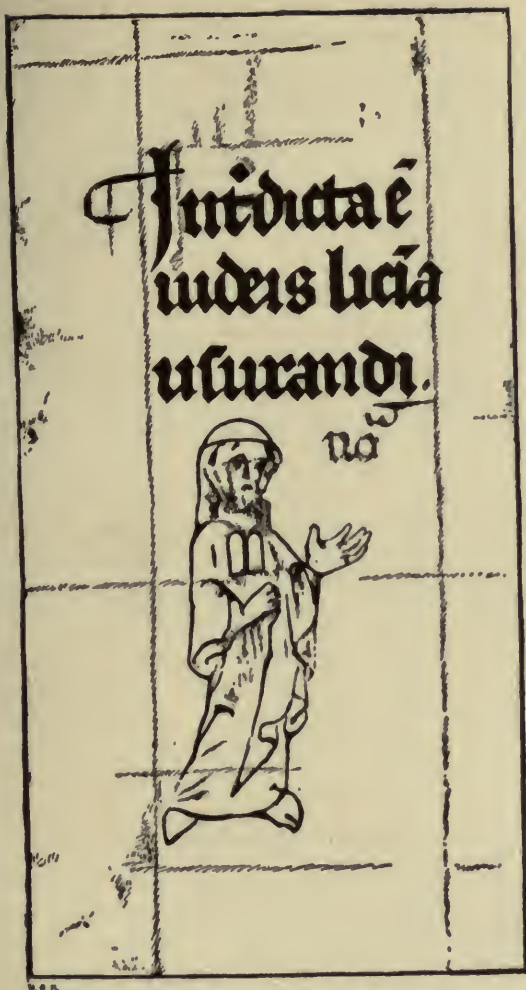 Int̄dicta ē
iudeis licīa
usurandi.